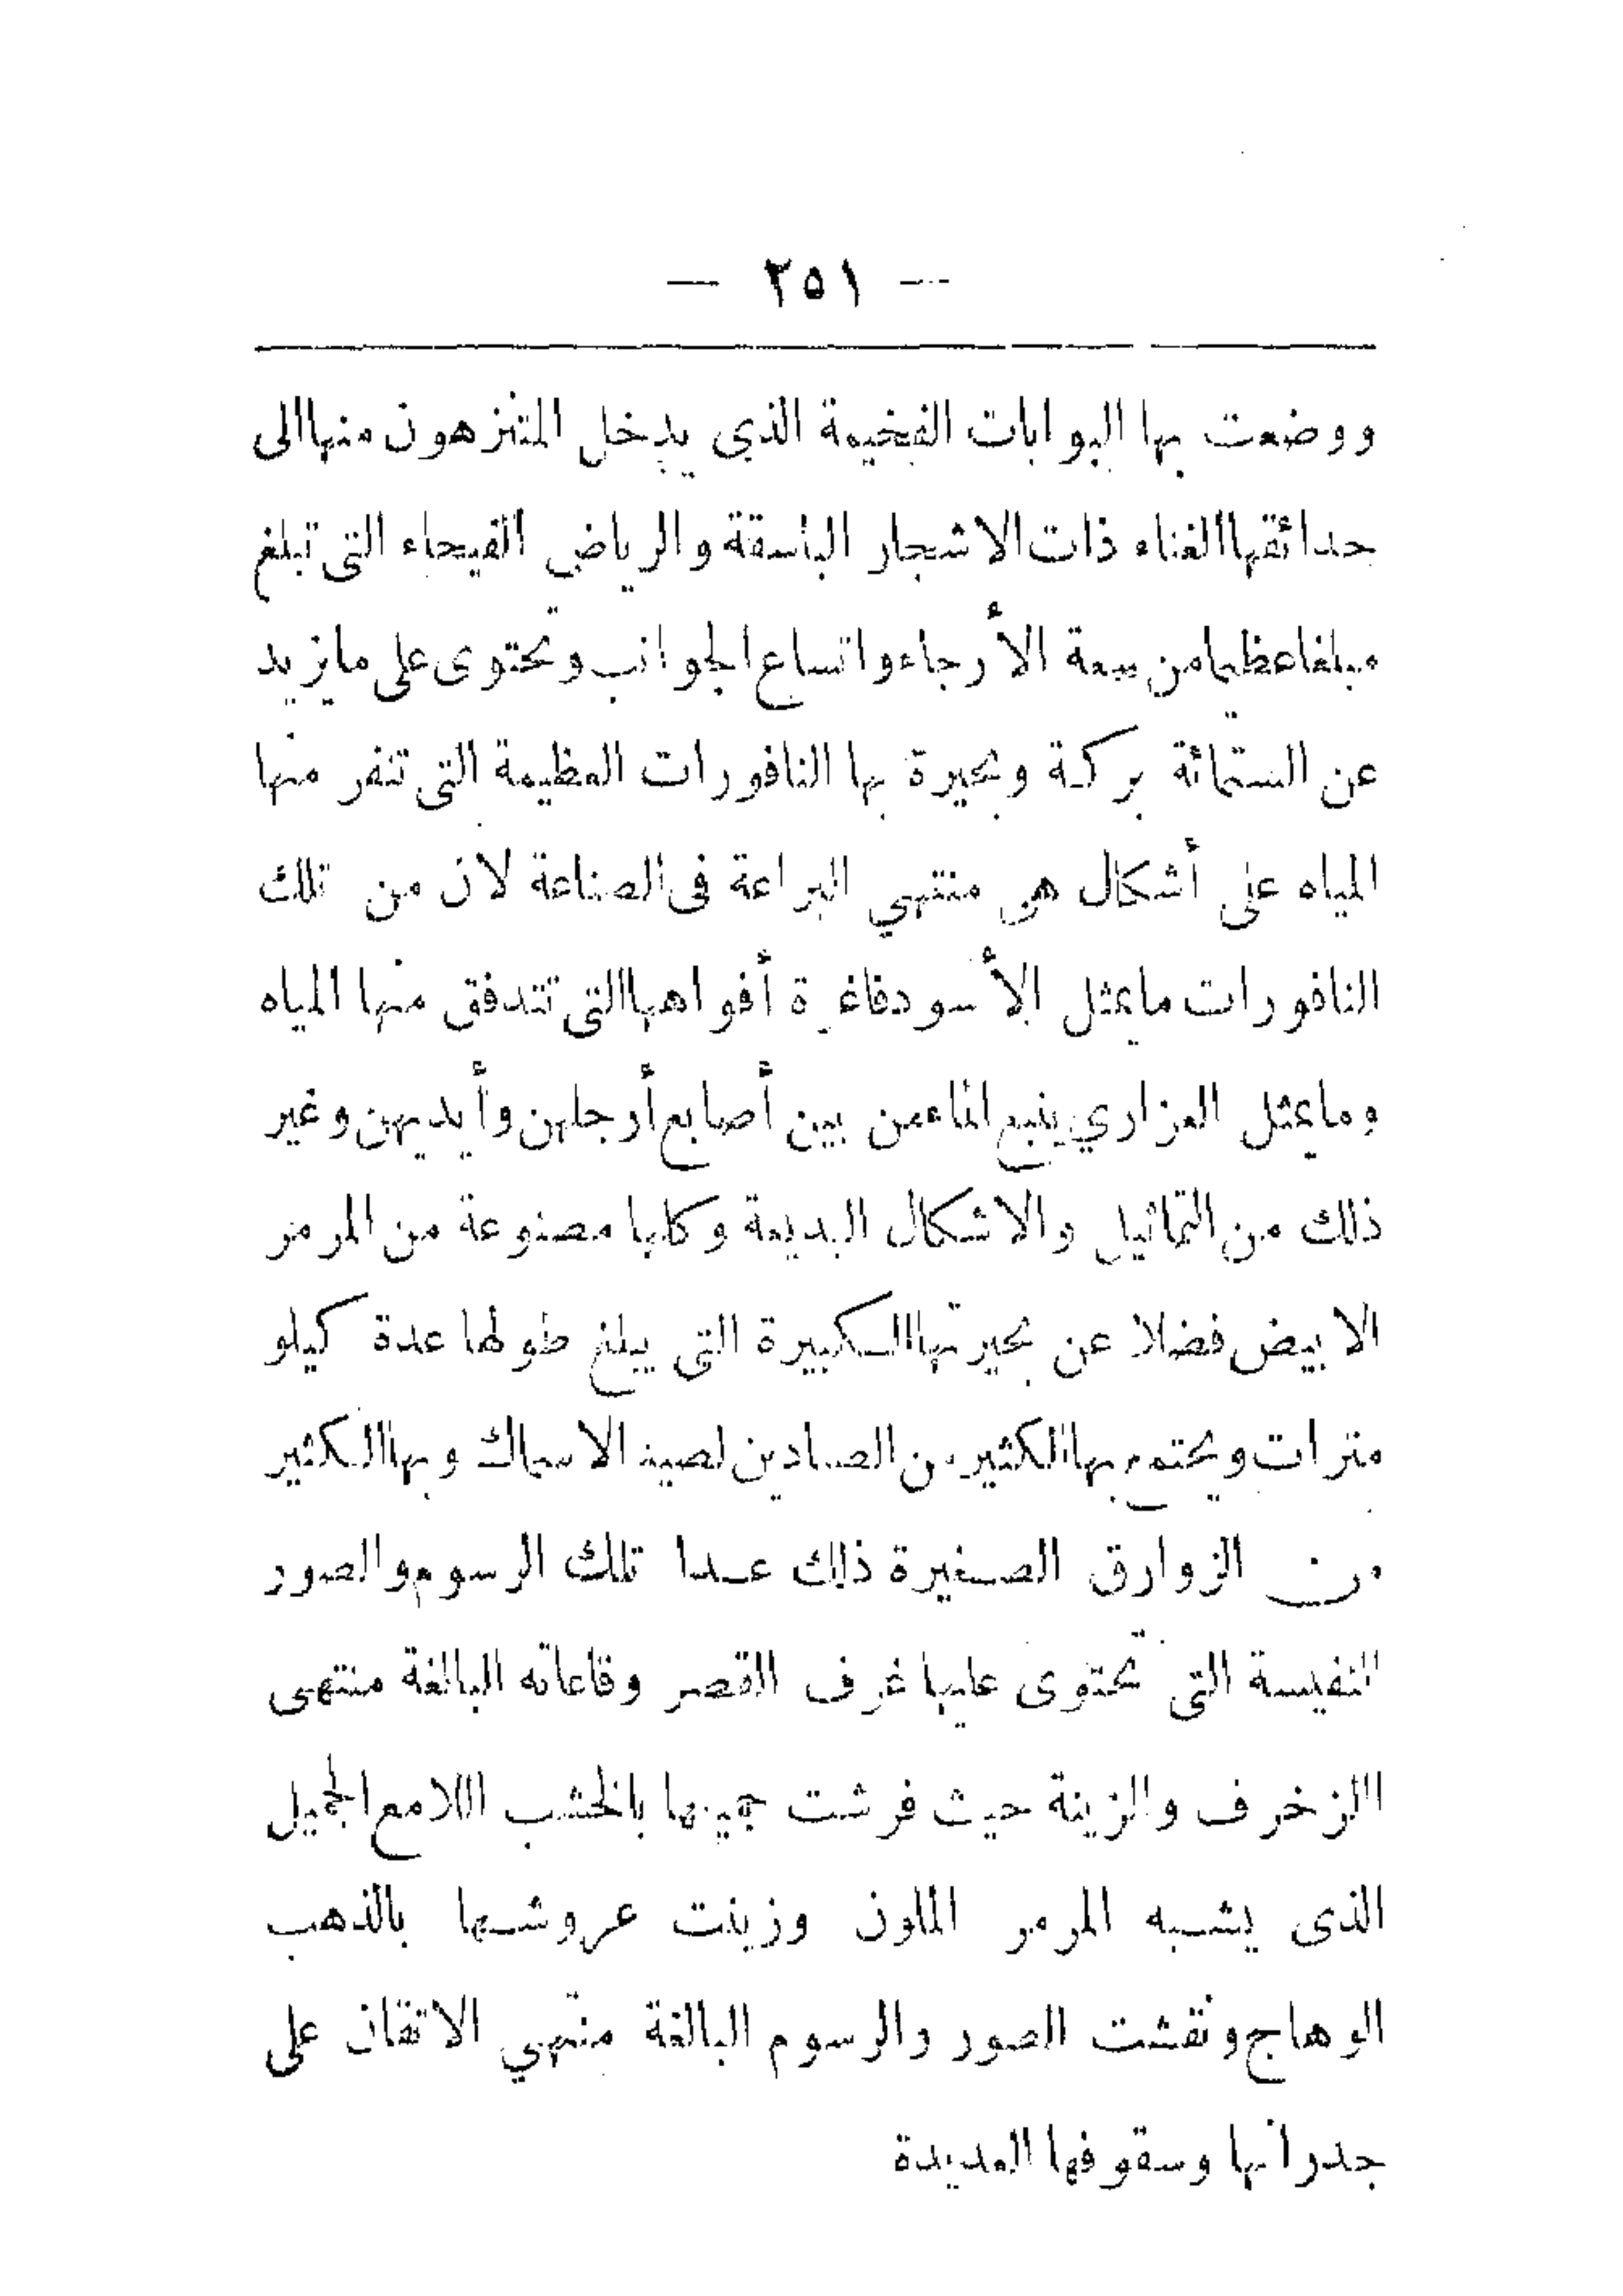 — ٢٥١ —
ووضعت بها البوابات الفخيمة الذى يدخل المتنزهون منها الى
حدائقها الغناء ذات الاشجار الباسقة والرياض الفيحاء التى تبلغ
مبلغا عظيما من سعة الأرجاء واتساع الجوانب وتحتوى على ما يزيد
عن الستمائة بركة وبحيرة بها النافورات العظيمة التى تنفر منها
المياه على أشكال هى منتهي البراعة فى الصناعة لان من تلك
النافورات ما يمثل الأسود فاغرة أفواهها التى تتدفق منها المياه
وما يمثل العزاري ينبع الماء من بين أصابع أرجلهن وأيديهن وغير
ذلك من التماثيل والاشكال البديعة وكلها مصنوعة من المرمر
الابيض فضلا عن بحيرتها الكبيرة التى يبلغ طولها عدة كيلو
مترات ويجتمع بها الكثير من الصيادين لصيد الاسماك وبها الكثير
من الزوارق الصغيرة ذلك عدا تلك الرسوم والصور
النفيسة التى تحتوى عليها غرف القصر وقاعاته البالغة منتهى
الزخرف والزينة حيث فرشت جميعها بالخشب اللامع الجميل
الذى يشبه المرمر الملون وزينت عروشها بالذهب
الوهاج ونقشت الصور والرسوم البالغة منتهي الاتقان على
جدرانها وسقوفها العديدة